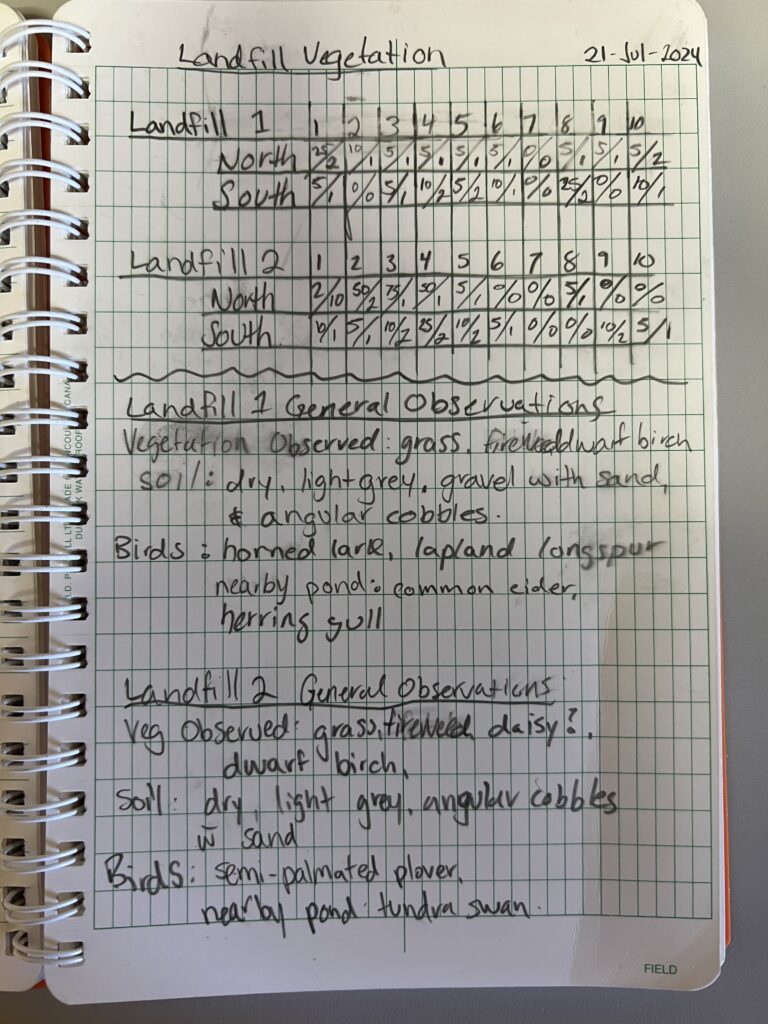 Landfill Vegetation 21-Jul-2024
Landfill 1 1 2 3 4 5 6 7 8 9 10
North 25/2 10/1 5/1 5/1 5/1 5/1 0/0 5/1 5/1 5/2
South 5/1 0/0 5/1 10/2 5/2 10/1 0/0 25/2 0/0 10/1
Landfill 2 1 2 3 4 5 6 7 8 9 10
North 2/10 50/2 75/1 50/1 5/1 0/0 0/0 5/1 0/0 0/0
South 10/1 5/1 10/2 25/2 10/2 5/1 0/0 0/0 10/2 5/1
Landfill 1 General Observations
Vegetation Observed: grass, fireweed dwarf birch
Soil: dry, light grey, gravel with sand,
& angular cobbles.
Birds: horned lark, lapland longspur
nearby pond: common eider,
herring gull
Landfill 2 General Observations
Veg Observed: grass, fireweed, daisy?,
dwarf birch,
Soil: dry, light grey, angular cobbles
w̄ sand
Birds: semi-palmated plover,
nearby pond: tundra swan.
FIELD